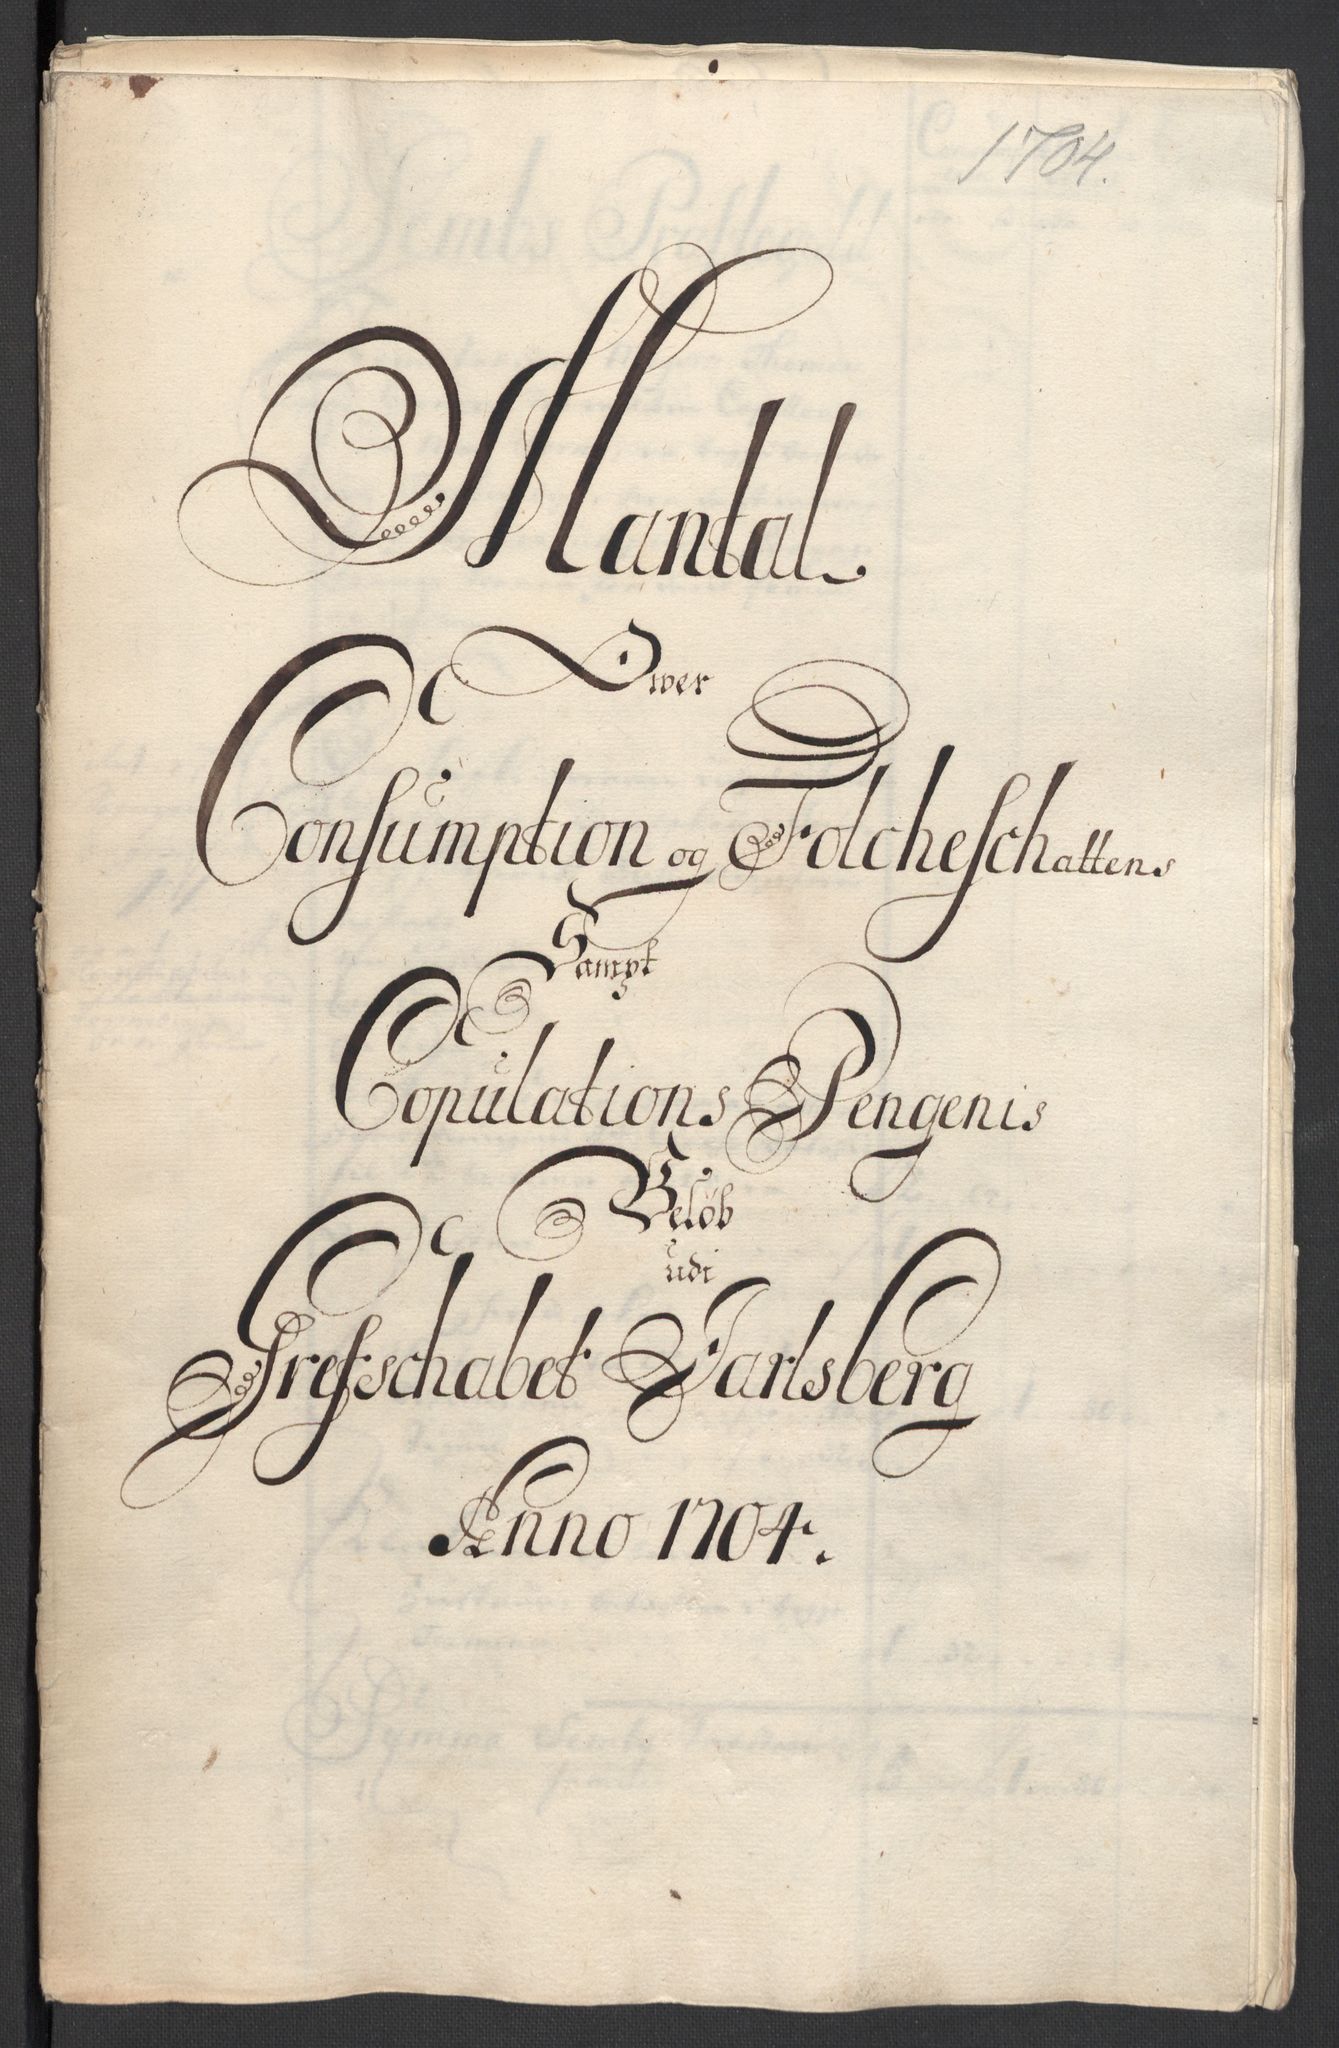 1704.
Mantal
Over
Consumption og Folcheschattens
Sampt
Copulations Pengenis
Beløb
udi
Grefschabet Jarlsberg
Anno 1704.